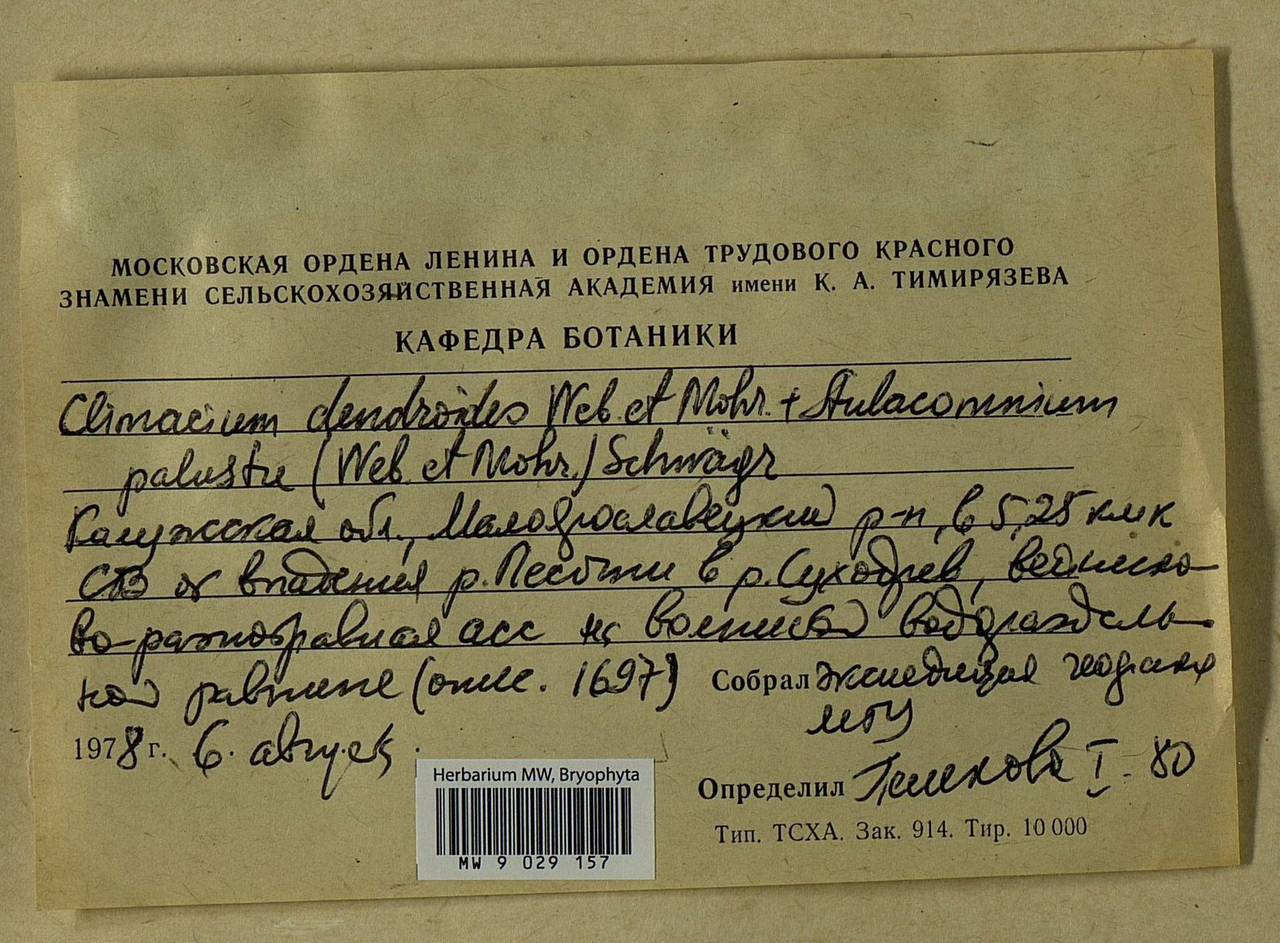 МОСКОВСКАЯ ОРДЕНА ЛЕНИНА И ОРДЕНА ТРУДОВОГО КРАСНОГО
ЗНАМЕНИ СЕЛЬСКОХОЗЯЙСТВЕННАЯ АКАДЕМИЯ имени К. А. ТИМИРЯЗЕВА
КАФЕДРА БОТАНИКИ
Climacium dendroides Web. et Mohr. + Aulacomnium
palustre (Web. et Mohr.) Schwägr
Калужская обл., Малоярославецкий р-н, в 5,25 км к
СВ от впадения р. Песочни в р. Суходрев, вейнико-
во-разнотравная асс на волнистой водораздель-
ной равнине (опис. 1697)
Собрал экспедиция геофака
МГУ
1978 г. 6. август.
Определил I. 80
Тип. ТСХА. Зак. 914. Тир. 10 000
Herbarium MW, Bryophyta
MW 9 029 157